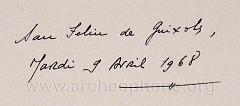 San Feliu de Guixols,
Mardi 9 Avril 1968
www.archeophone.org